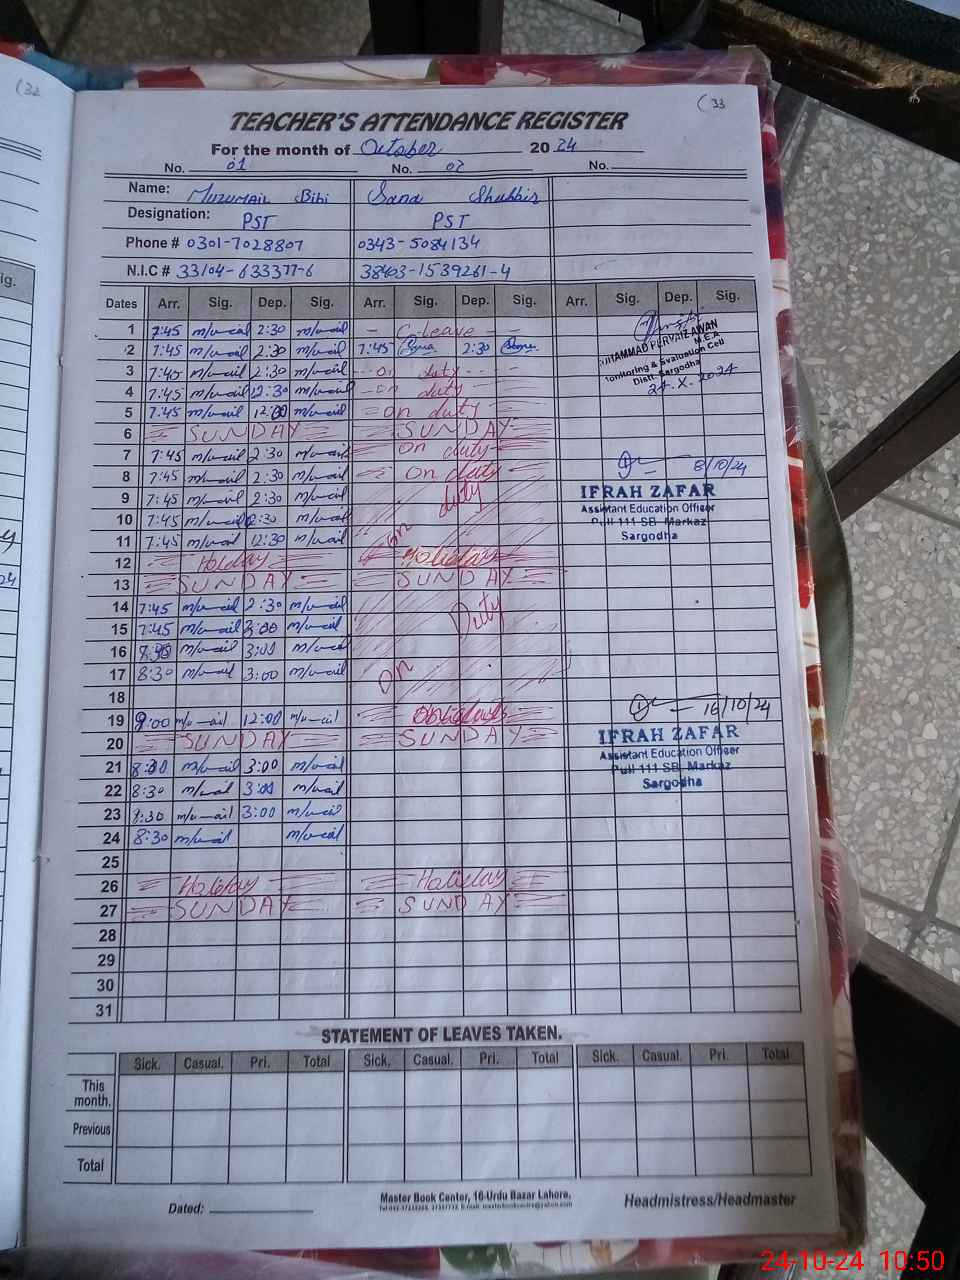 (32
(33
TEACHER'S ATTENDANCE REGISTER
For the month of October 2024
No. 01 No. 02 No.
Name: Muzumail Bibi Sana Shabbir
Designation: PST PST
Phone # 0301-7028807 0343-5084134
N.I.C # 33104-633377-6 38403-1539261-4
Dates Arr. Sig. Dep. Sig. Arr. Sig. Dep. Sig. Arr. Sig. Dep. Sig.
1 7:45 2:30 - C-leave - -
2 7:45 2:30 7:45 2:30
3 7:45 2:30 on duty
4 7:45 12:30 on duty
5 7:45 12:00 on duty
6 SUNDAY SUNDAY
7 7:45 2:30 on duty
8 7:45 2:30 on duty
9 7:45 2:30 duty
10 7:45 2:30
11 7:45 12:30 on
12 Holiday Holiday
13 SUNDAY SUNDAY
14 7:45 2:30 Duty
15 7:45 3:00
16 3:00
17 8:30 3:00 on
18
19 9:00 12:00
20 SUNDAY SUNDAY
21 8:30 3:00
22 8:30 3:00
23 8:30 3:00
24 8:30
25
26 Holiday Holiday
27 SUNDAY SUNDAY
28
29
30
31
MUHAMMAD PERVAIZ AWAN
M.E.A
Monitoring & Evaluation Cell
Distt. Sargodha
24.X.2024
8/10/24
IFRAH ZAFAR
Assistant Education Officer
Pull 111 SB, Markaz
Sargodha
16/10/24
IFRAH ZAFAR
Assistant Education Officer
Pull 111 SB, Markaz
Sargodha
STATEMENT OF LEAVES TAKEN.
Sick. Casual. Pri. Total Sick. Casual. Pri. Total Sick. Casual. Pri. Total
This month.
Previous
Total
Dated:
Master Book Center, 16-Urdu Bazar Lahore,
Headmistress/Headmaster
24-10-24 10:50